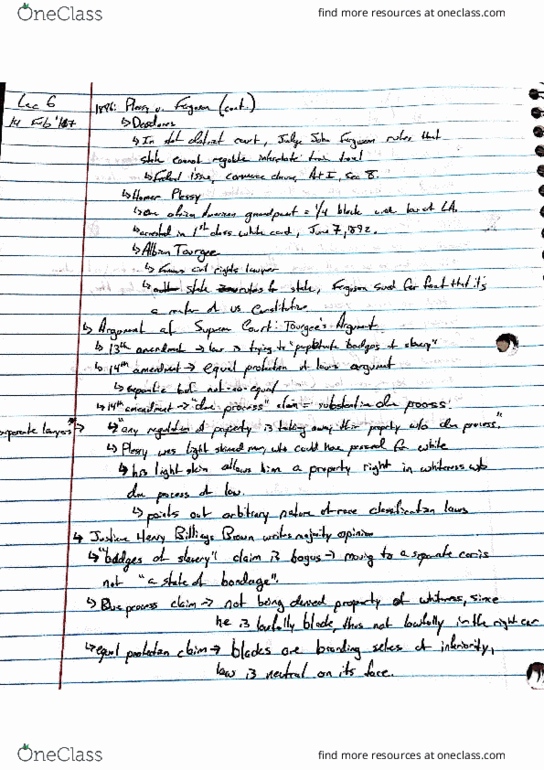 OneClass
find more resources at oneclass.com
Lec 6
14 Feb '17
1896: Plessy v. Ferguson (cont.)
↳ Desdunes
↳ In dist district court, Judge John Ferguson rules that
state cannot regulate interstate train travel
↳ Federal issue, commerce clause, Art I, sec 8.
↳ Homer Plessy
↳ one african american grandparent = 1/4 black under law of LA.
↳ arrested in 1st class white card, June 7, 1892.
↳ Albion Tourgee
↳ Famous civil rights lawyer
↳ state rules for state, Ferguson sued for fact that it's
a matter of US Constitution
↳ Argument at Supreme Court: Tourgee's Argument
↳ 13th amendment → law is trying to "perpetuate badges of slavery"
↳ 14th amendment → equal protection of laws argument
↳ separate but not-co-equal
↳ 14th amendment → "due process" claim = substantive due process.
corporate lawyers → ↳ "any regulation of property is taking away their property w/o due process,"
↳ Plessy was light skinned man, who could have passed for white
↳ his light skin allows him a property right in whiteness w/o
due process of law.
↳ points out arbitrary nature of race classification laws
↳ Justice Henry Billings Brown writes majority opinion
↳ "badges of slavery" claim is bogus → moving to a separate car is
not "a state of bondage".
↳ Due process claim → not being denied property of whiteness, since
he is lawfully black, thus not lawfully in the right car
↳ equal protection claim → blacks are branding selves of inferiority,
law is neutral on its face.
OneClass
find more resources at oneclass.com